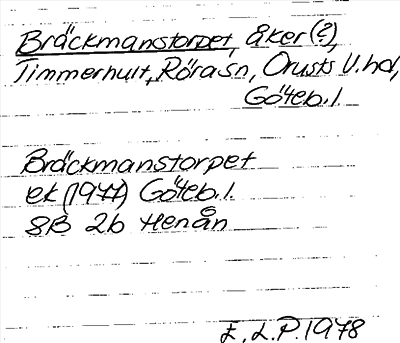 Bräckmanstorpet, åker (?),
Timmerhult, Röra Sn, Orusts V. hd,
Göteb. l.
Bräckmanstorpet
ek (1977) Göteb. l.
8B 2b Henån
E. L. P. 1978